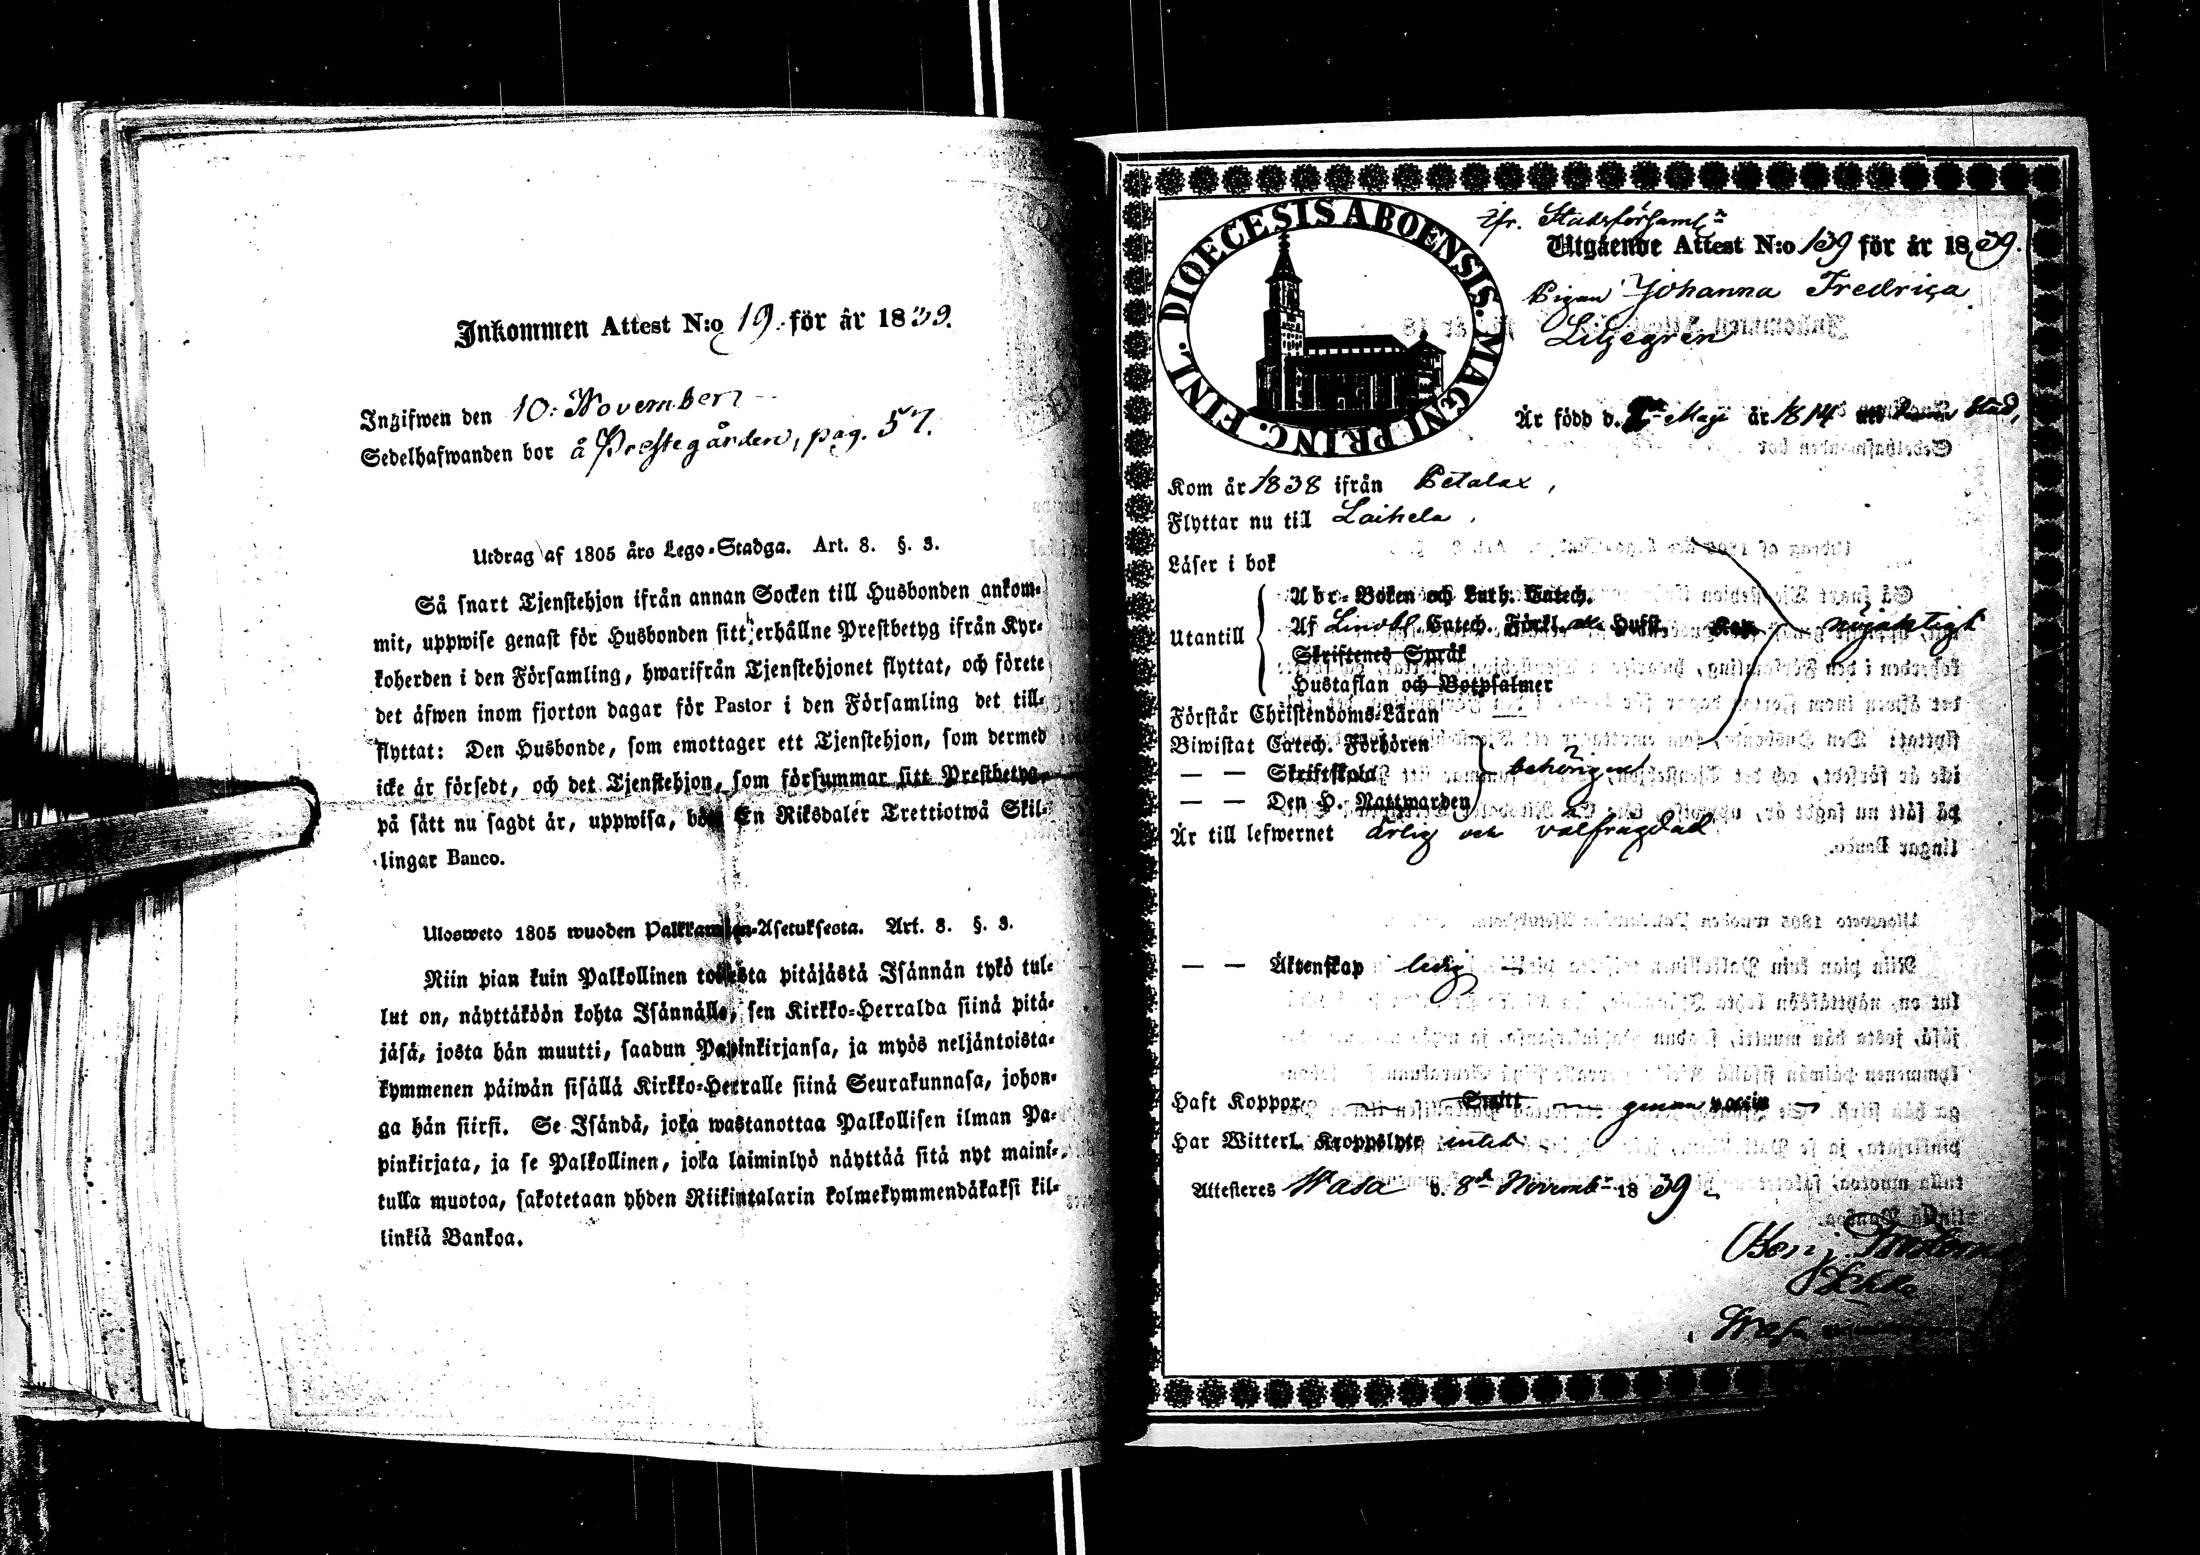 Inkommen Attest N:o 19. för år 1839.
Ingifwen den 10. November
Sedelhafwanden bor å Prestegården, pag. 57.
Utdrag af 1805 års Lego-Stadga. Art. 8. §. 3.
Så snart Tjenstehjon ifrån annan Socken till Husbonden ankom-
mit, uppwise genast för Husbonden sitt erhållne Prestbetyg ifrån Kyr-
koherden i den Församling, hwarifrån Tjenstehjonet flyttat, och förete
det äfwen inom fjorton dagar för Pastor i den Församling det till-
flyttat: Den Husbonde, som emottager ett Tjenstehjon, som dermed
icke är försedt, och det Tjenstehjon, som försummar sitt Prestbetyg
på sätt nu sagdt är, uppwisa, En Riksdaler Trettiotwå Skil-
lingar Banco.
Ulosweto 1805 wuoden Palkkawäen-Asetuksesta. Art. 8. §. 3.
Niin pian kuin Palkollinen toisesta pitäjästä Isännän tykö tul-
lut on, näyttäköön kohta Isännälle, sen Kirkko-Herralda siinä pitä-
jäsä, josta hän muutti, saadun Papinkirjansa, ja myös neljäntoista-
kymmenen päiwän sisällä Kirkko-Herralle siinä Seurakunnasa, johon-
ga hän siirsi. Se Isändä, joka wastanottaa Palkollisen ilman Pa-
pinkirjata, ja se Palkollinen, joka laiminlyö näyttää sitä nyt maini-
tulla muotoa, sakotetaan yhden Riikintalarin kolmekymmendäkaksi kil-
linkiä Bankoa.
DIOECESIS ABOENSIS. MAGNI PRINC. FINL.
ifr. Stadsförsaml
Utgående Attest N:o 139 för år 1839.
Pigan Johanna Fredrica
Liljegren
Är född d. Maji år 1814 Stad,
Kom år 1838 ifrån Petalax,
Flyttar nu till Laihela,
Läser i bok
Utantill
Abc-Boken och Luth. Catech.
Af Lindbl. Catech. Förkl. Hufst. Kap.
nöjaktigt
Skriftenes Språk
Hustaflan och Botpsalmer
Förstår Christendoms-Läran
Biwistat Catech. Förhören
— — Skriftskola behörigen
— — Den H. Nattwarden
Är till lefwernet ärlig och välfrägdad
— — Äktenskap ledig
Haft Koppor Smitt genom vaccin
Har Witterl. Kroppslyte intet
Attesteres Wasa d. 8de Novembr 1839
Benj.